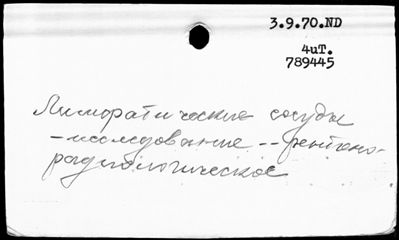 3.9.70.ND
4uT.
789445
Лимфатические сосуды
-исследование -- рентгено-
радиологическое